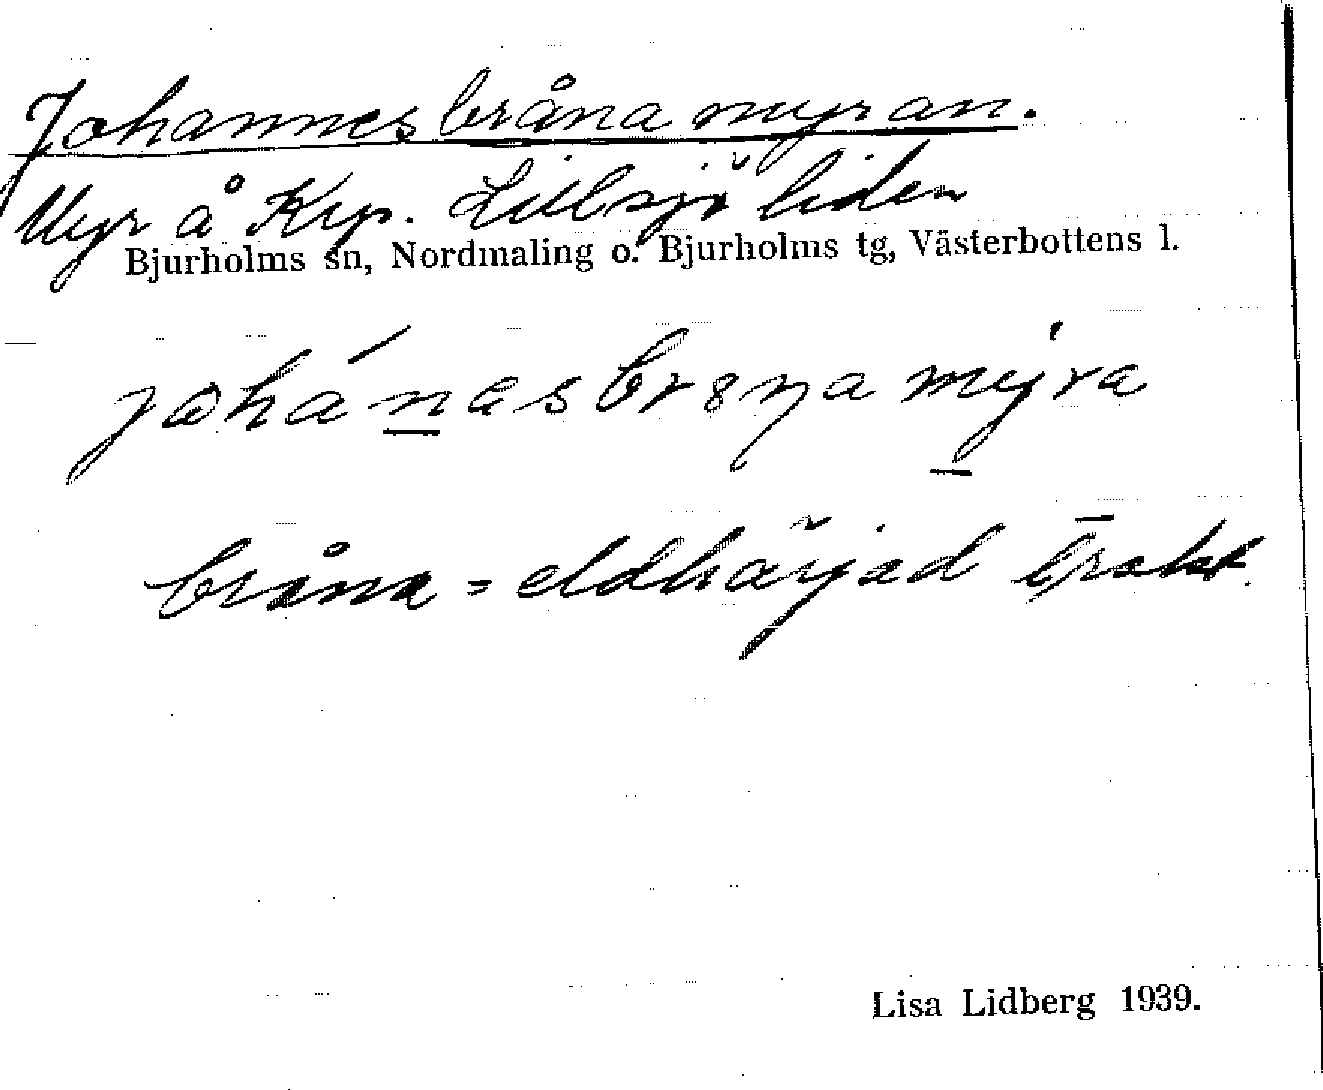 Johannesbrånamyran.
Myr å Krp. Lillsjöliden
Bjurholms sn, Nordmaling o. Bjurholms tg, Västerbottens l.
bråna = eldhärjad trakt.
Lisa Lidberg 1939.